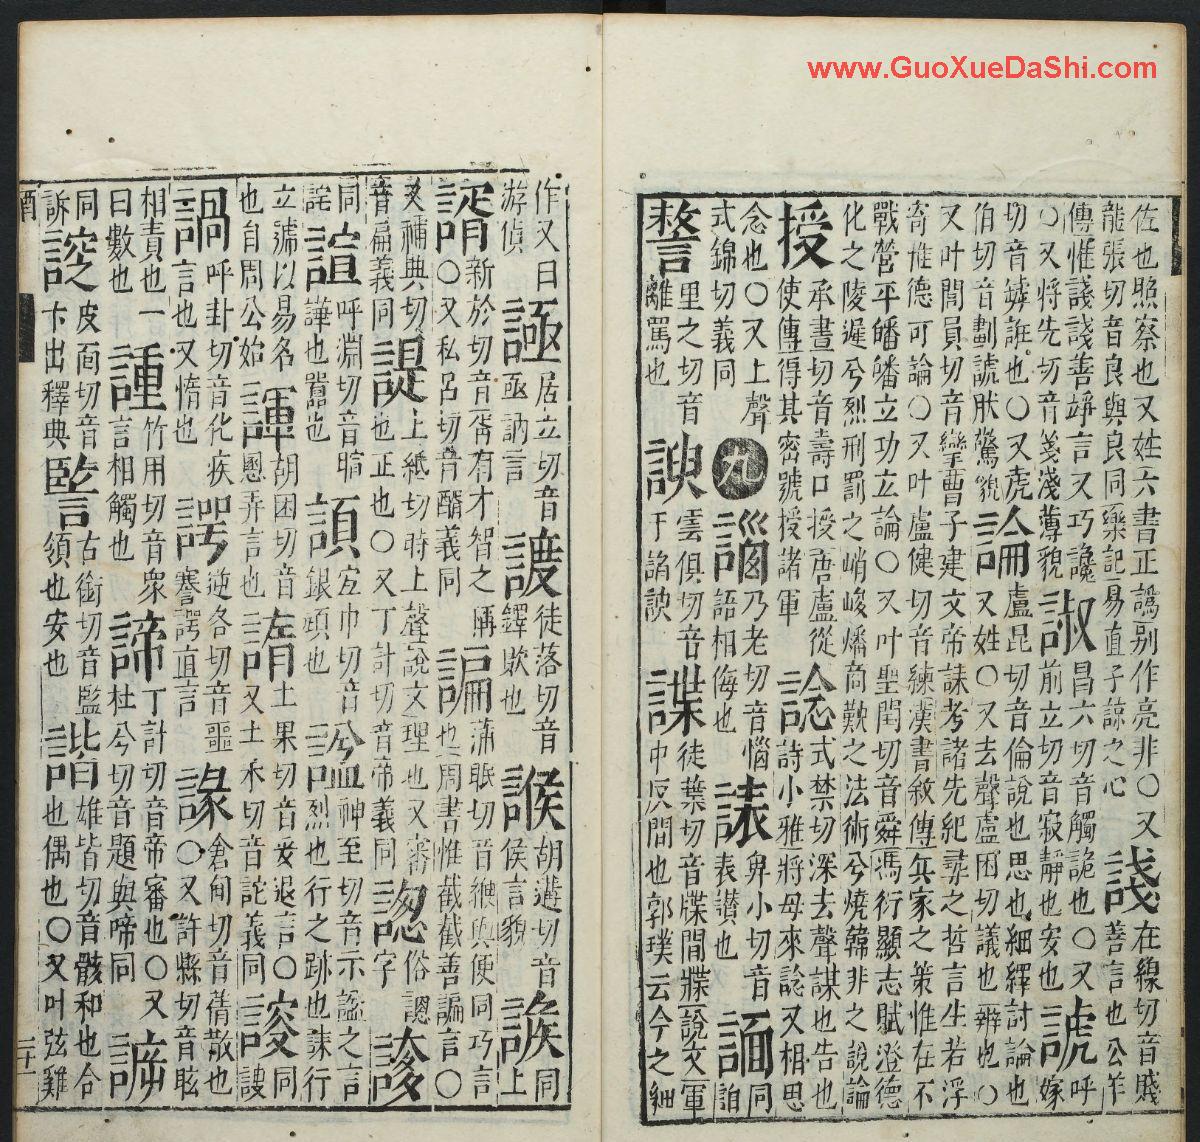 www.GuoXueDaShi.com
佐也照察也又姓六書正譌別作亮非〇又諓在線切音賤
龍張切音良與良同樂記易直子諒之心善言也公羊
傳惟諓諓善竫言又巧讒諔昌六切音觸詭也〇又諕呼
〇又將先切音箋淺薄貌前立切音寂靜也安也嫁
切音罅誑也〇又虎論盧昆切音倫說也思也細繹討論也
伯切音劃諕肰驚貌又姓〇又去聲盧困切議也辨也〇
又叶閭員切音攣曹子建文帝誄考諸先紀尋之哲言生若浮
寄惟德可論〇又叶盧健切音練漢書敘傳兵家之策惟在不
戰營平皤皤立功立論〇又叶聖閏切音舜馮衍顯志賦澄德
化之陵遲兮烈刑罰之峭峻燔商歎之法術兮燒韓非之說論
承晝切音壽口授唐盧從諗式禁切深去聲謀也告也
使傳得其密號授諸軍詩小雅將母來諗又相思
念也〇又上聲九𧩣乃老切音惱諘𤰞小切音同
式錦切義同語相侮也表讚也詯
謷里之切音諛雲俱切音諜徒葉切音牒閒牒說文軍
離罵也于諂諛中反間也郭璞云今之細
作又曰諈居立切音渡徒落切音𧩨胡遘切音同
游偵亟訥言鐸欺也𠋫言貌上
諝新於切音胥有才智之稱諞蒲眠切音緶與便同巧言
〇又私呂切音醑義同也周書惟截截善諞言〇
又補典切諟上紙切時上聲說文理也又審俗諰
音扁義同也正也〇又丁計切音帝義同字
同諠呼淵切音暄宜巾切音神至切音示諡之言
詫譁也嚻也銀頭也烈也行之跡也誄行
立號以易名諢胡困切音土果切音妥退言〇同
也自周公始戲弄言也又土禾切音詑義同謏
呼卦切音化疾諤逆各切音噩倉甸切音蒨散也
言也又惰也謇諤直言〇又許縣切音眩
相責也一諥竹用切音衆諦丁計切音帝審也〇又
曰數也言相觸也杜兮切音題與啼同
同皮面切音古銜切音監諧雄皆切音骸和也合
訴卞出釋典領也安也也偶也〇又叶弦雞
酉
二十一